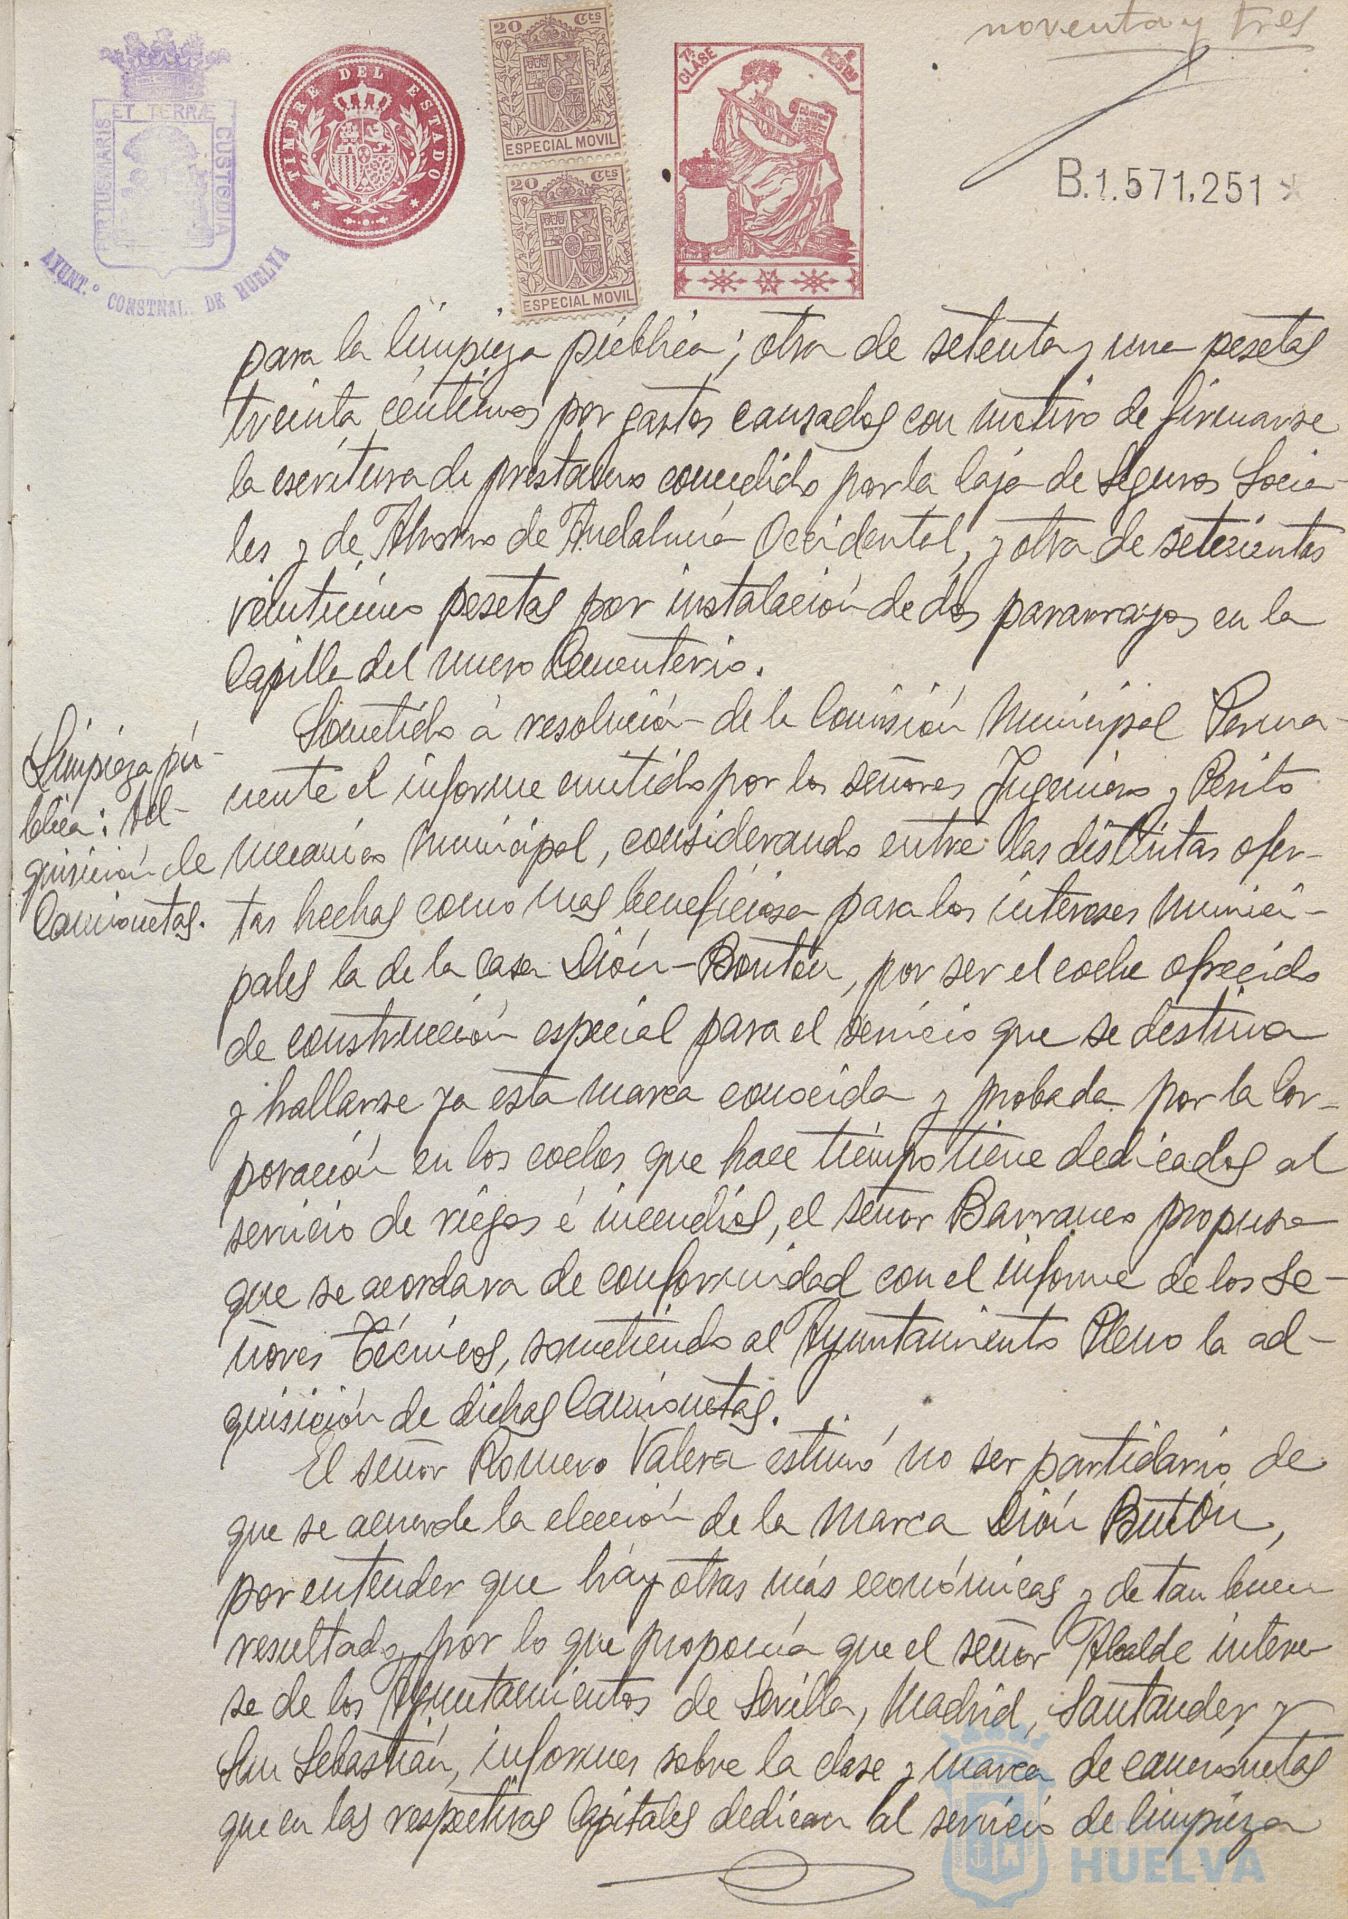 noventa y tres
PORTUS MARIS ET TERRÆ CUSTODIA
AYUNT.º CONSTNAL. DE HUELVA
TIMBRE DEL ESTADO
20 Cts
ESPECIAL MOVIL
20 Cts
ESPECIAL MOVIL
7ª CLASE
PESETAS
B.1.571.251
para la limpieza pública; otra de setenta y una pesetas
treinta céntimos por gastos causados con motivo de firmarse
la escritura de prestamo concedido por la Caja de Seguros Socia-
les y de Ahorro de Andalucía Occidental, y otra de setecientas
veinticinco pesetas por instalación de dos pararrayos en la
Capilla del nuevo Cementerio.
Limpieza pú-
blica: Ad-
quisición de
Camionetas.
Sometido á resolución de la Comisión Municipal Perma-
nente el informe emitido por los señores Ingeniero y Perito
mecanico Municipal, considerando entre las distintas ofer-
tas hechas como mas beneficiosa para los intereses munici-
pales la de la casa Dión-Boutón, por ser el coche ofrecido
de construcción especial para el servicio que se destina
y hallarse ya esta marca conocida y probada por la Cor-
poración en los coches que hace tiempo tiene dedicados al
servicio de riegos é incendios, el señor Barranco propuso
que se acordara de conformidad con el informe de los Se-
ñores Técnicos, sometiendo al Ayuntamiento Pleno la ad-
quisición de dichas Camionetas.
El señor Romero Valera estimó no ser partidario de
que se acuerde la elección de la marca Dión Butón,
por entender que háy otras más económicas y de tan buen
resultado, por lo que proponía que el señor Alcalde intere-
se de los Ayuntamientos de Sevilla, Madrid, Santander y
San Sebastián, informes sobre la clase y marca de camionetas
que en las respectivas Capitales dedican al servicio de limpieza
HUELVA